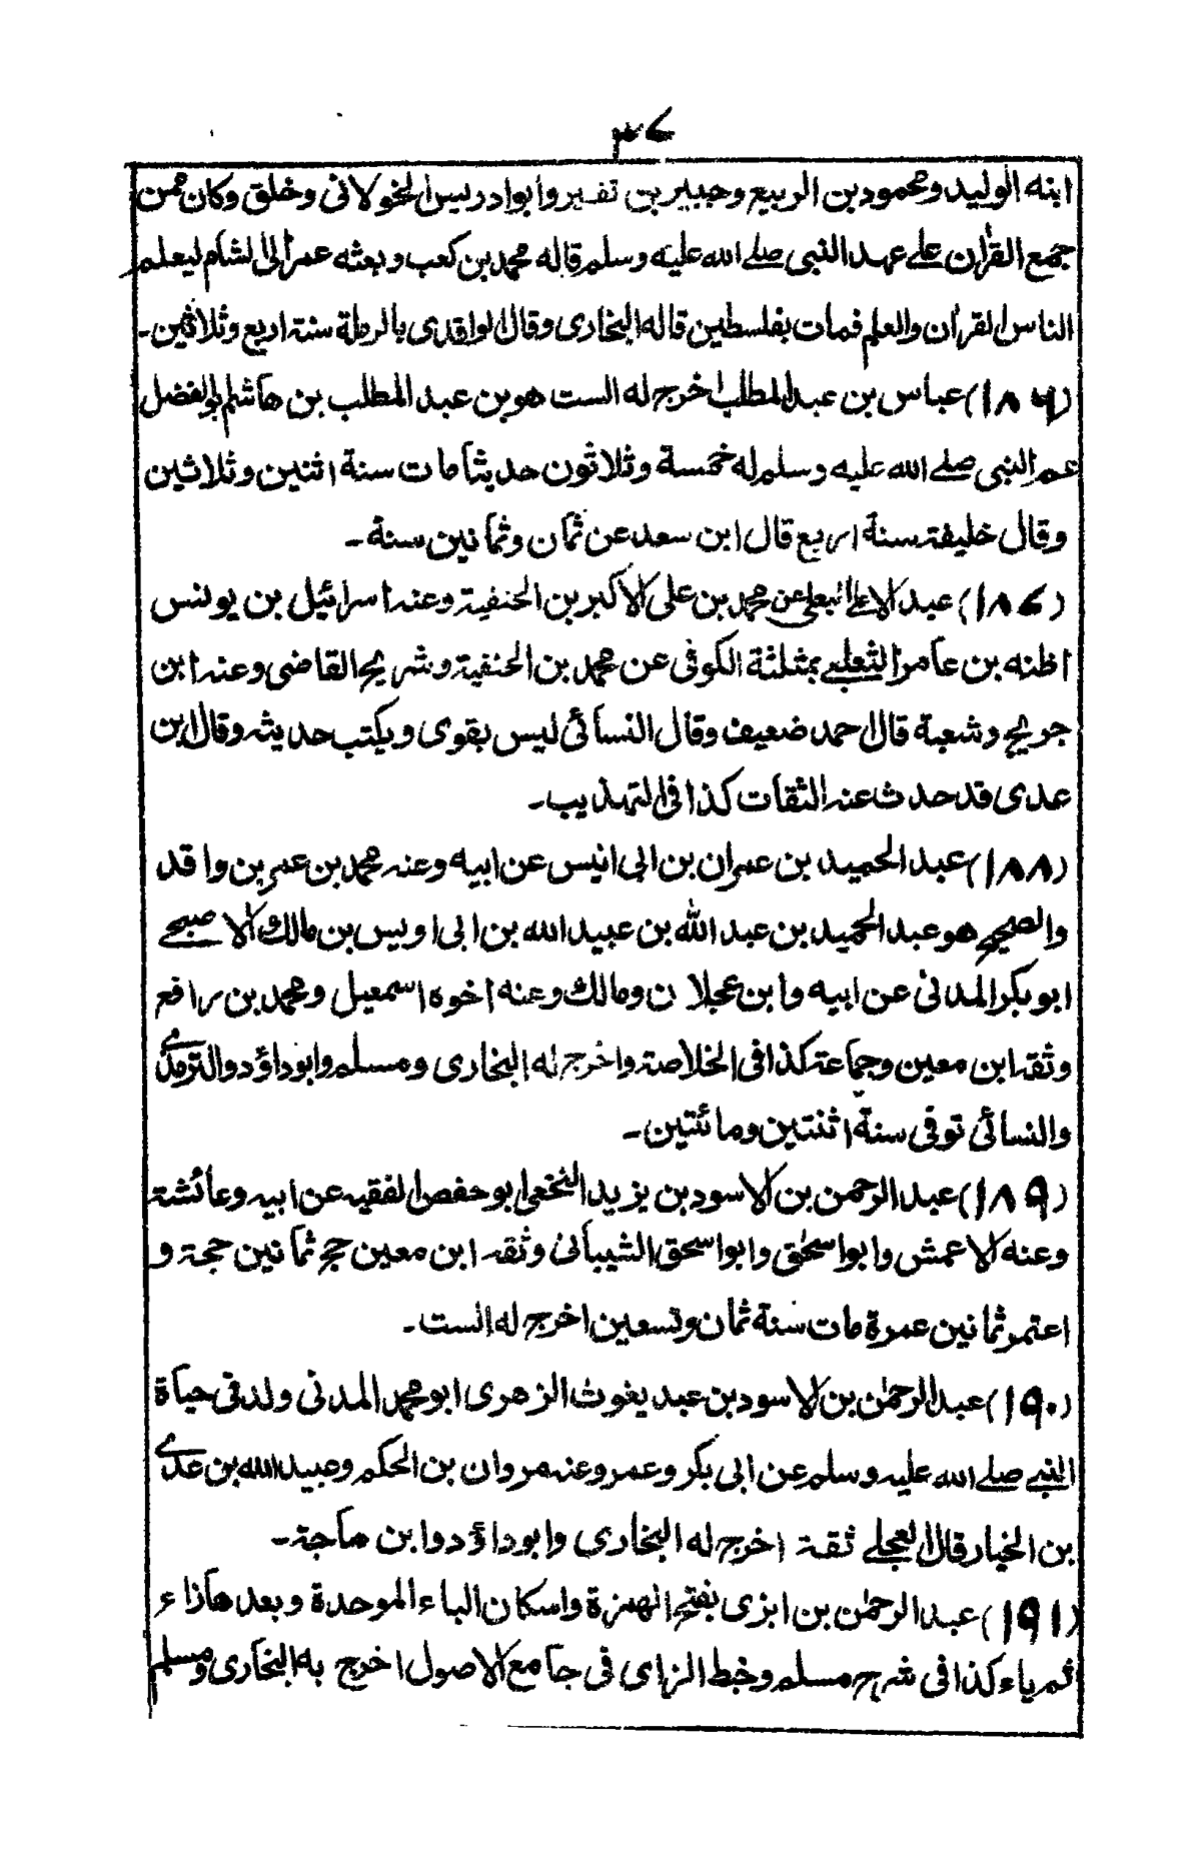 ٣٧
ابنه الوليد ومحمود بن الربيع وجبير بن نفير وابوادريس الخولانى وخلق وكان ممن
جمع القرأن على عهد النبى صلے الله عليه وسلم قاله محمد بن كعب وبعثه عمر الى الشام ليعلم
الناس القرأن والعلم فمات بفلسطين قاله البخارى وقال الواقدى بالرملة سنة اربع وثلاثين۔
(١٨٦) عباس بن عبد المطلب اخرج له الست هو بن عبد المطلب بن هاشم ابو الفضل
عم النبى صلے الله عليه وسلم له خمسة وثلاثون حديثا مات سنة اثنين وثلاثين
وقال خليفة سنة اربع قال ابن سعد عن ثمان وثمانين سنة۔
(١٨٧) عبد الاعلے عن محمد بن على الاكبر بن الحنفية وعنه اسرائيل بن يونس
اظنه بن عامر الثعلبے بمثلثة الكوفى عن محمد بن الحنفية وشريح القاضى وعنه ابن
جريج وشعبة قال احمد ضعيف وقال النسائى ليس بقوى ويكتب حديثه وقال ابن
عدى قد حدث عنه الثقات كذا فى التهذيب۔
(١٨٨) عبد الحميد بن عمران بن ابى انيس عن ابيه وعنه محمد بن عمر بن واقد
والصحيح هو عبد الحميد بن عبد الله بن عبيد الله بن ابى اويس بن مالك الاصبحے
ابو بكر المدنى عن ابيه وابن عجلان ومالك وعنه اخوه اسمعيل ومحمد بن رافع
وثقه ابن معين وجماعة كذا فى الخلاصة واخرج له البخارى ومسلم وابوداؤد والترمذے
والنسائى توفى سنة اثنتين ومائتين۔
(١٨٩) عبد الرحمن بن الاسود بن يزيد النخعى ابو حفص الفقيه عن ابيه وعائشة
وعنه الاعمش وابو اسحٰق وابو اسحق الشيبانى وثقه ابن معين حج ثمانين حجة و
اعتمر ثمانين عمرة مات سنة ثمان وتسعين اخرج له الست۔
(١٩٠) عبد الرحمٰن بن الاسود بن عبد يغوث الزهرى ابو محمد المدنى ولد فى حياة
النبے صلے الله عليه وسلم عن ابى بكر وعمر وعنه مروان بن الحكم وعبيد الله بن عدے
بن الخيار قال العجلے ثقة اخرج له البخارى وابوداؤد وابن ماجة۔
(١٩١) عبد الرحمٰن بن ابزى بفتح الهمزة واسكان الباء الموحدة وبعدها زاء
ثم ياء كذا فى شرح مسلم وخبط الزاى فى جامع الاصول اخرج به البخارى ومسلم